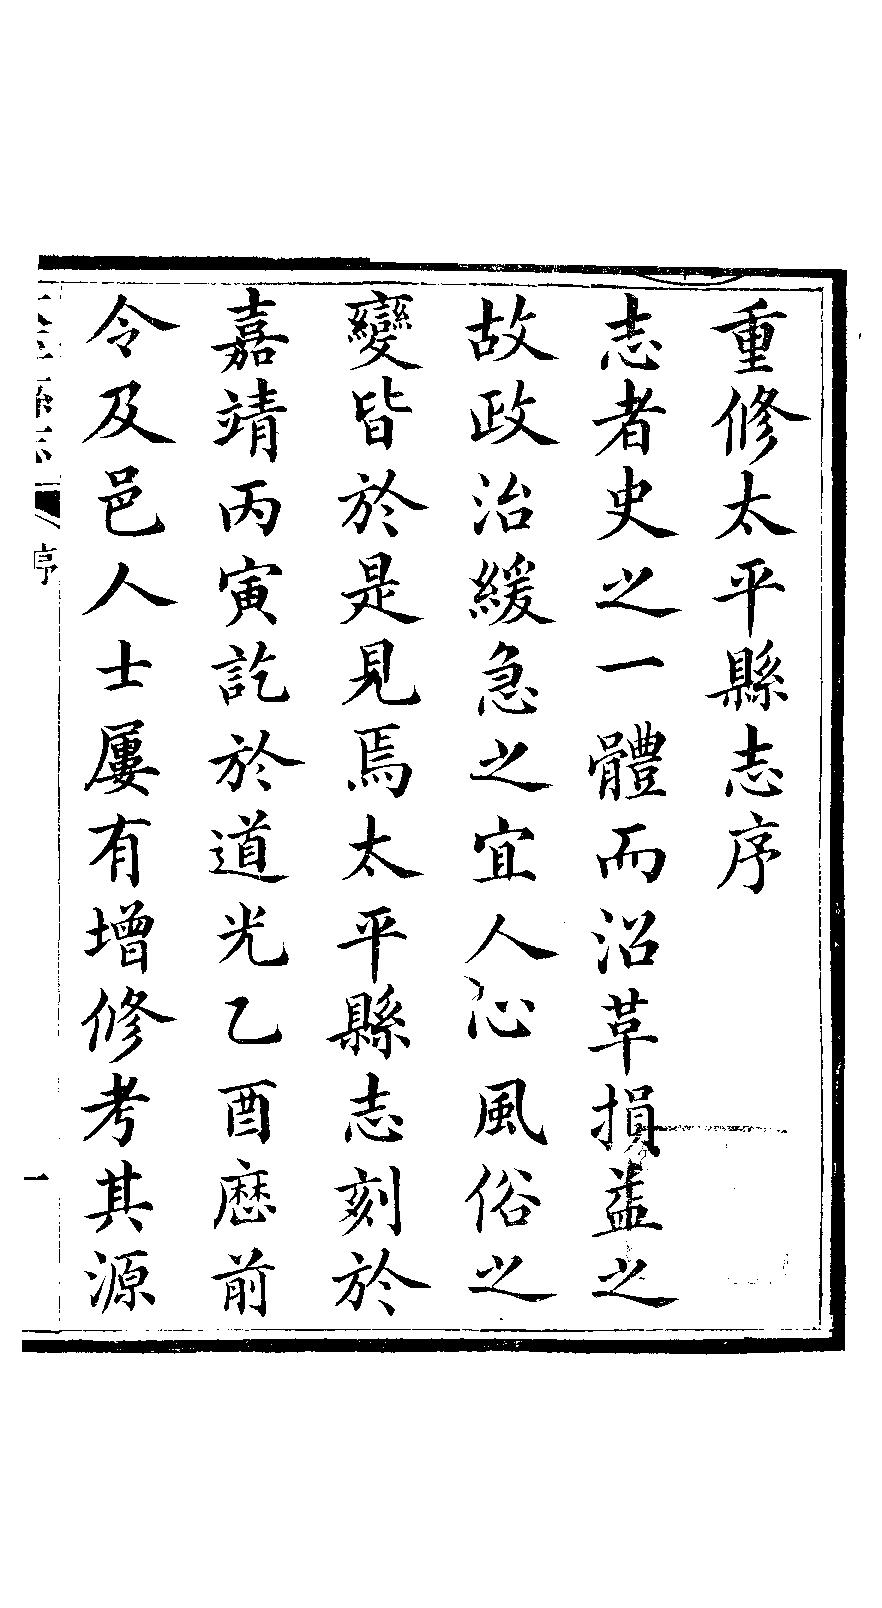 重修太平縣志序
志者史之一體而沿革損益之
故政治緩急之宜人心風俗之
變皆於是見焉太平縣志刻於
嘉靖丙寅訖於道光乙酉厯前
令及邑人士屢有增修考其源
序
一